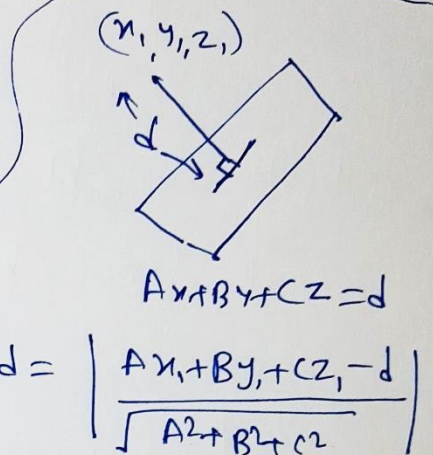 (x₁, y₁, z₁)
d
Ax+By+Cz=d
d = | Ax₁+By₁+Cz₁-d / √A²+B²+C² |